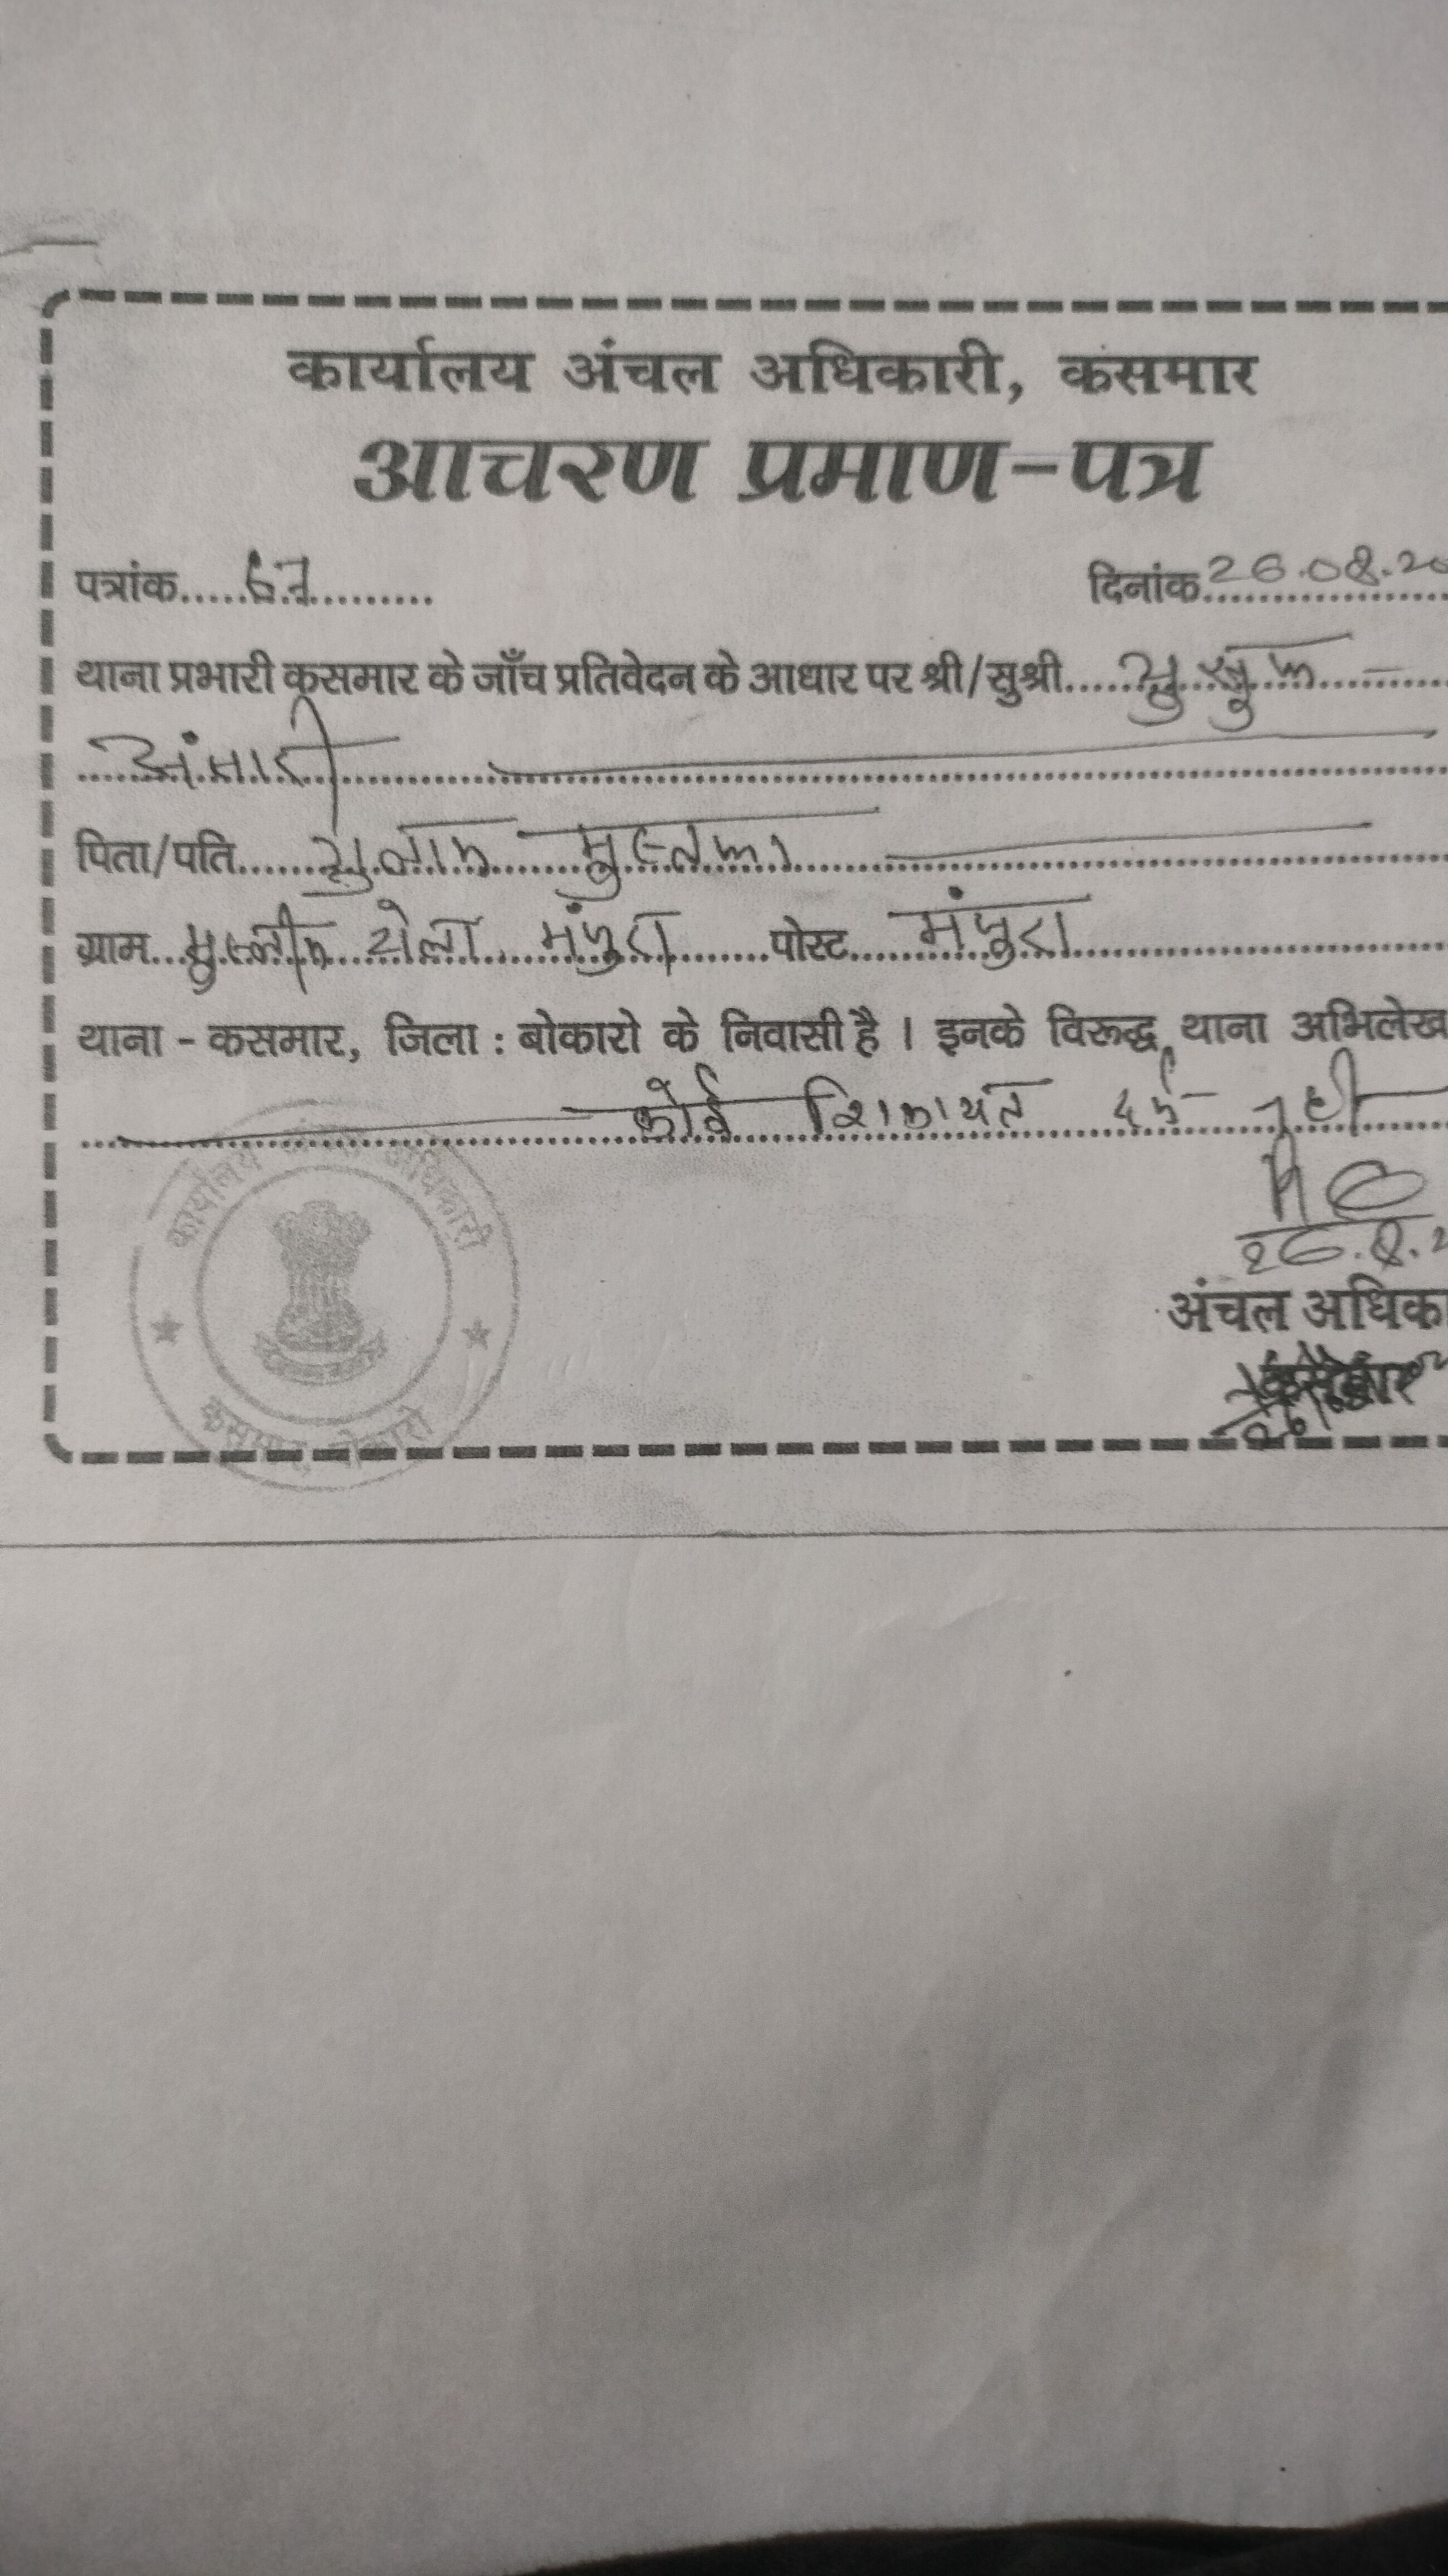 कार्यालय अंचल अधिकारी, कसमार
आचरण प्रमाण-पत्र
पत्रांक.....67.......... दिनांक 26.08.20
थाना प्रभारी कसमार के जाँच प्रतिवेदन के आधार पर श्री/सुश्री
अंसारी
पिता/पति...... मुस्तफा
ग्राम... टोला मंजुरा पोस्ट... मंजुरा
थाना - कसमार, जिला : बोकारो के निवासी है । इनके विरूद्ध थाना अभिलेख
कोई शिकायत दर्ज नहीं
26.8.2
अंचल अधिका
कसमार
कार्यालय अंचल अधिकारी
कसमार, बोकारो